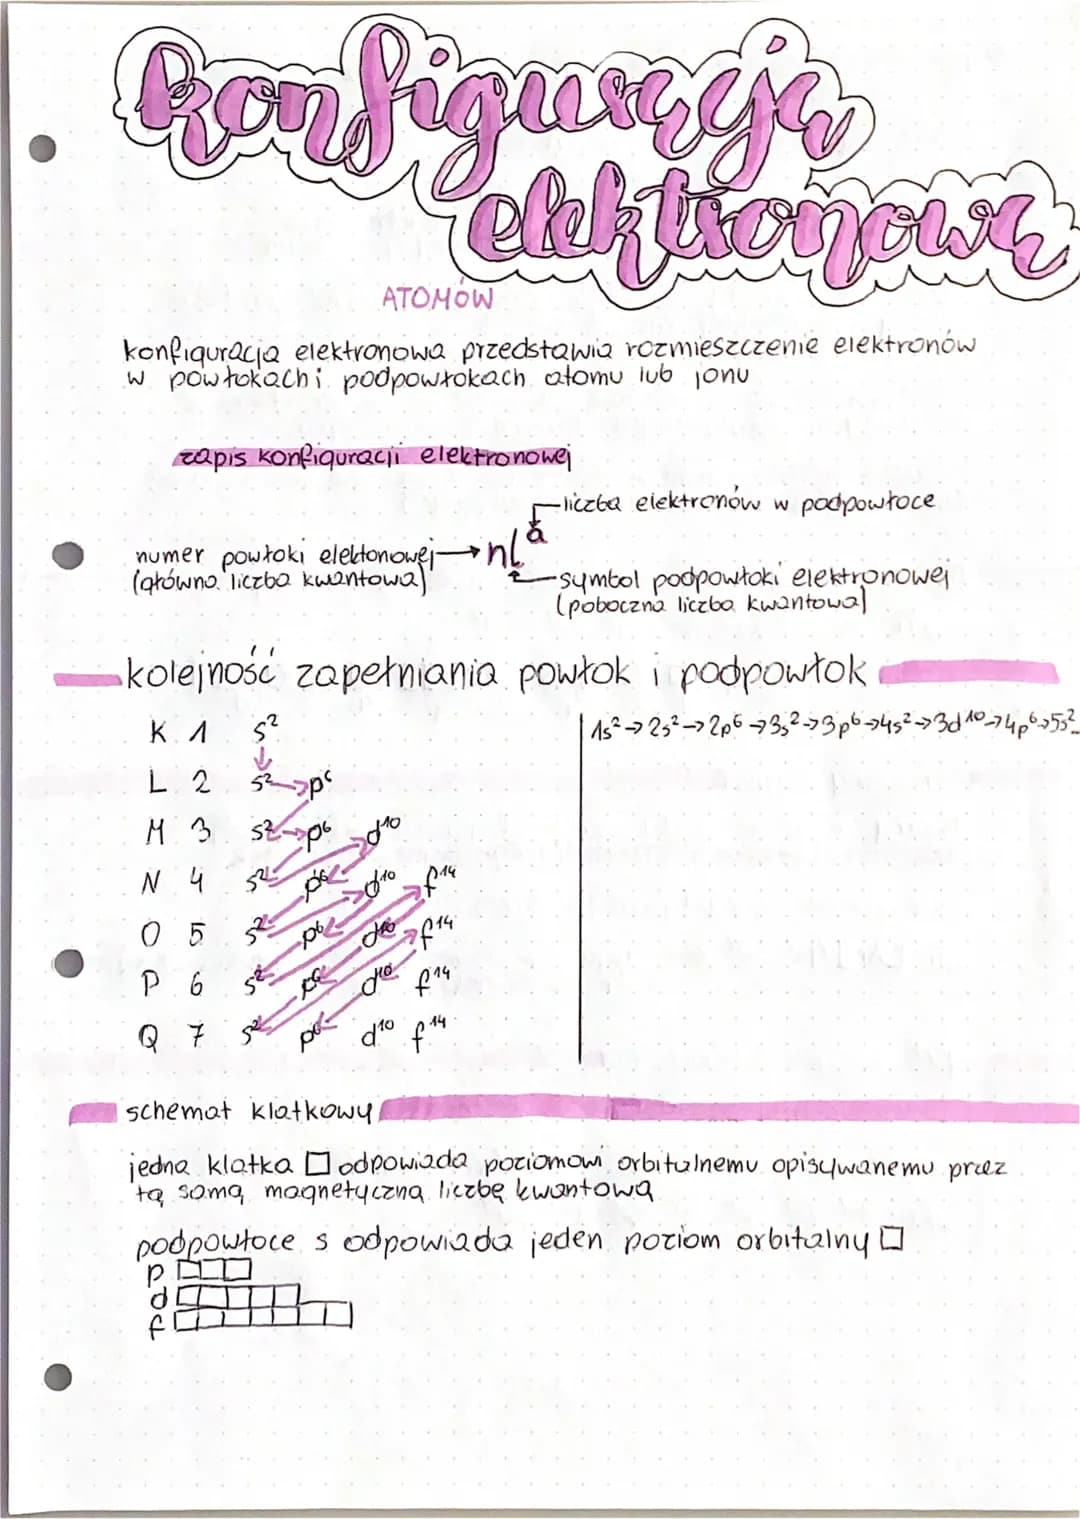 konfiguracja
elektronowa
ATOMÓW
konfiguracja elektronowa przedstawia rozmieszczenie elektronów
w powłokach i podpowłokach atomu lub jonu
zapis konfiguracji elektronowej
liczba elektronów w podpowłoce
numer powłoki elektonowej → nlᵃ
(główna liczba kwantowa)
symbol podpowłoki elektronowej
(poboczna liczba kwantowa)
kolejność zapełniania powłok i podpowłok
K 1 s²
1s² → 2s² → 2p⁶ → 3s² → 3p⁶ → 4s² → 3d¹⁰ → 4p⁶ → 5s²...
L 2 s² p⁶
M 3 s² p⁶ d¹⁰
N 4 s² p⁶ d¹⁰ f¹⁴
O 5 s² p⁶ d¹⁰ f¹⁴
P 6 s² p⁶ d¹⁰ f¹⁴
Q 7 s² p⁶ d¹⁰ f¹⁴
schemat klatkowy
jedna klatka □ odpowiada poziomowi orbitalnemu opisywanemu przez
tą samą magnetyczną liczbę kwantową
podpowłoce s odpowiada jeden poziom orbitalny □
p
d
f